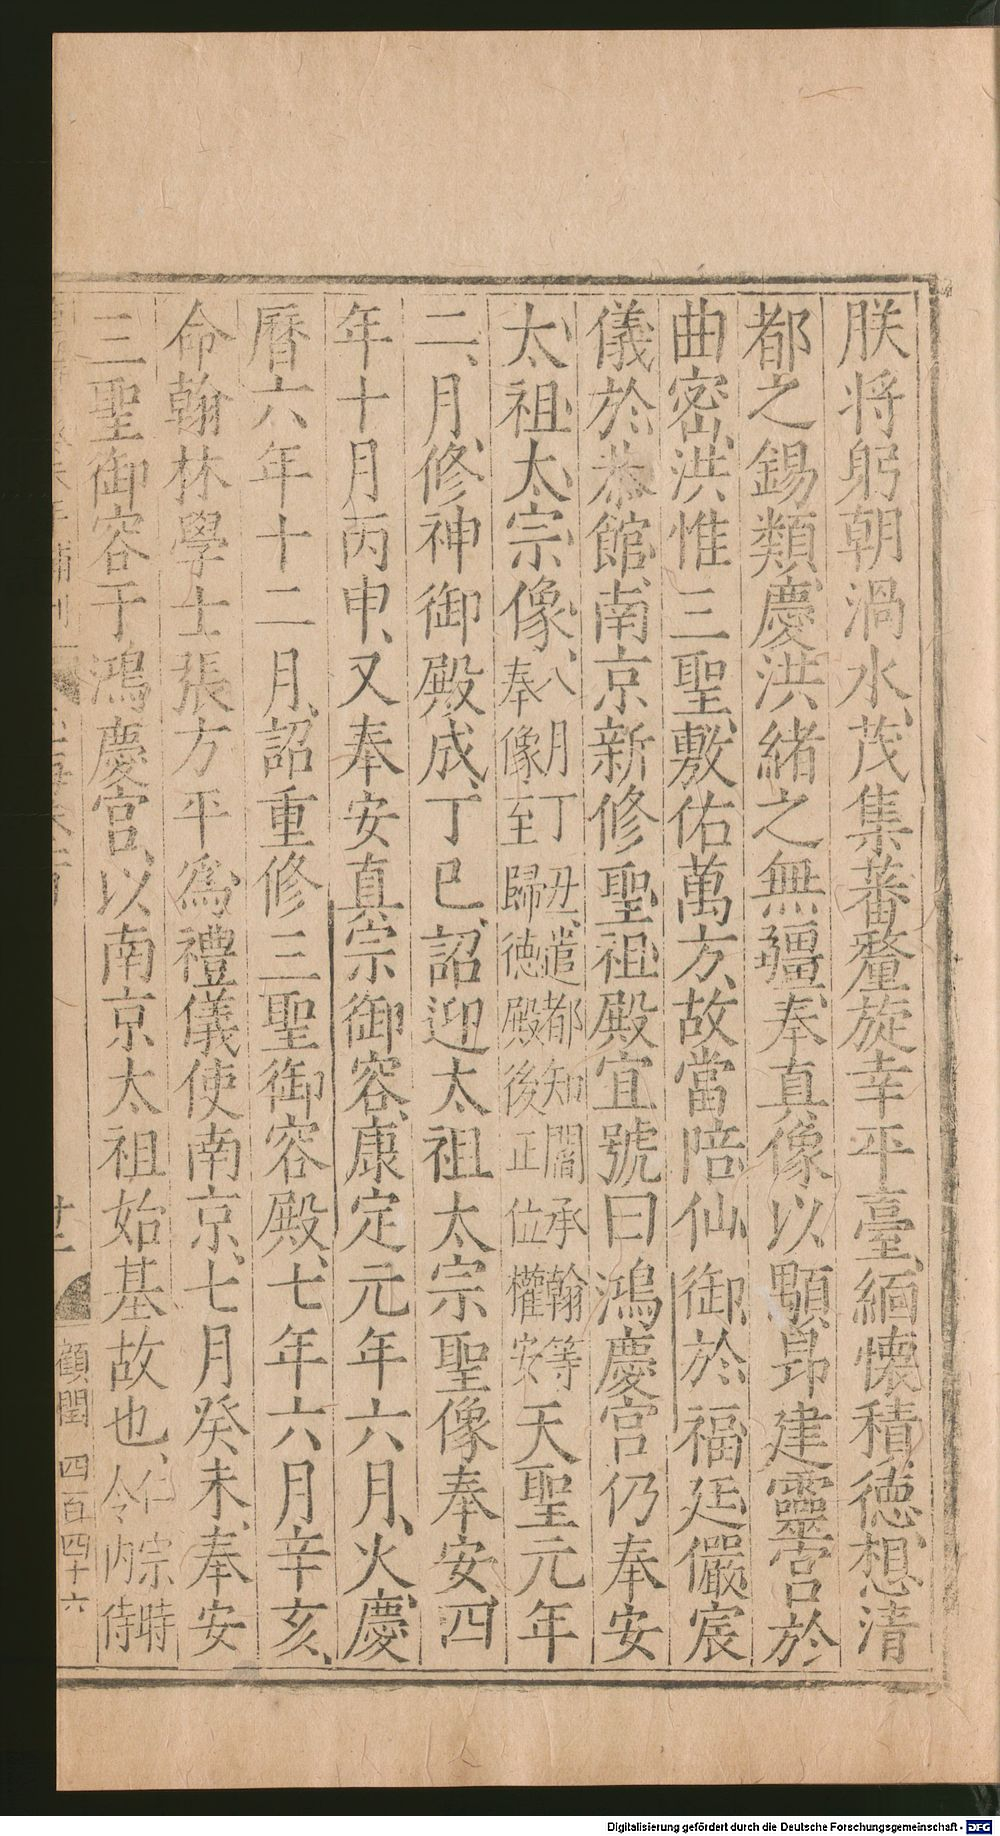 朕將躬朝渦水、茂集蕃釐旋幸平臺、緬懷積德、想清
都之錫類、慶洪緒之無疆、奉真像以顒昂建靈宮於
曲密、洪惟三聖、敷佑萬方、故當陪仙御於福延儼宸
儀於恭館、南京新修聖祖殿宜號曰鴻慶宮仍奉安
太祖太宗像、八月丁丑、遣都知閻承翰等奉像至歸德殿後正位權安天聖元年
二、月、修神御殿成、丁巳、詔迎太祖太宗聖像奉安、四
年十月丙申、又奉安真宗御容、康定元年六月、火慶
曆六年十二月、詔重修三聖御容殿、七年六月辛亥、
命翰林學士張方平為禮儀使南京、七月癸未、奉安
三聖御容于鴻慶宮、以南京太祖始基故也、仁宗時令內侍
顧閏 四百四十六
Digitalisierung gefördert durch die Deutsche Forschungsgemeinschaft - DFG